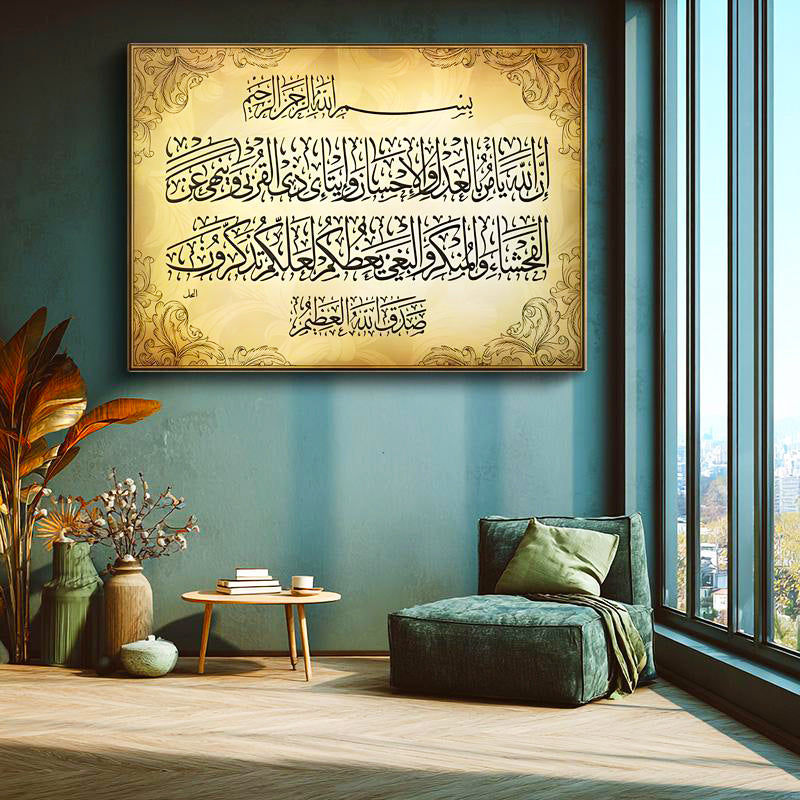 بِسْمِ اللَّهِ الرَّحْمَنِ الرَّحِيمِ
إِنَّ اللَّهَ يَأْمُرُ بِالْعَدْلِ وَالْإِحْسَانِ وَإِيتَاءِ ذِي الْقُرْبَى وَيَنْهَى عَنِ
الْفَحْشَاءِ وَالْمُنْكَرِ وَالْبَغْيِ يَعِظُكُمْ لَعَلَّكُمْ تَذَكَّرُونَ
النحل
صَدَقَ اللَّهُ الْعَظِيمُ